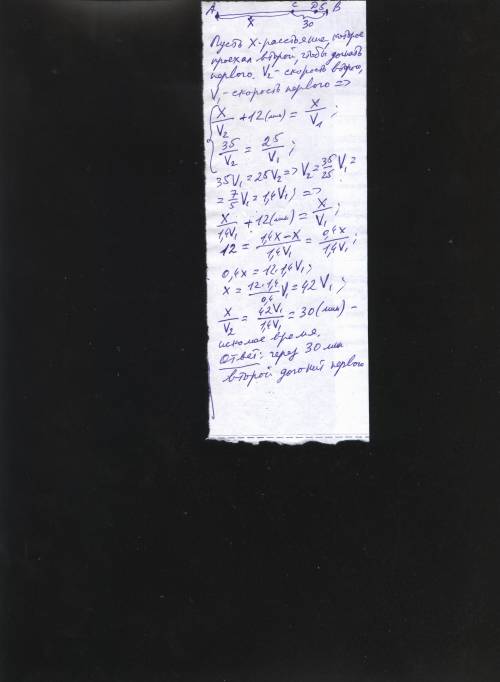 A C 25 B
x 30
Пусть x - расстояние, которое
проехал второй, чтобы догнать
первого. V₂ - скорость второго,
V₁ - скорость первого =>
x/V₂ + 12(мин) = x/V₁;
35/V₂ = 25/V₁;
35V₁ = 25V₂ => V₂ = 35/25 V₁ =
= 7/5 V₁ = 1,4V₁; =>
x/1,4V₁ + 12(мин) = x/V₁;
12 = (1,4x - x)/1,4V₁ = 0,4x/1,4V₁;
0,4x = 12·1,4V₁;
x = 12·1,4/0,4 V₁ = 42V₁;
x/V₂ = 42V₁/1,4V₁ = 30(мин) -
искомое время.
Ответ: через 30 мин
второй догонит первого